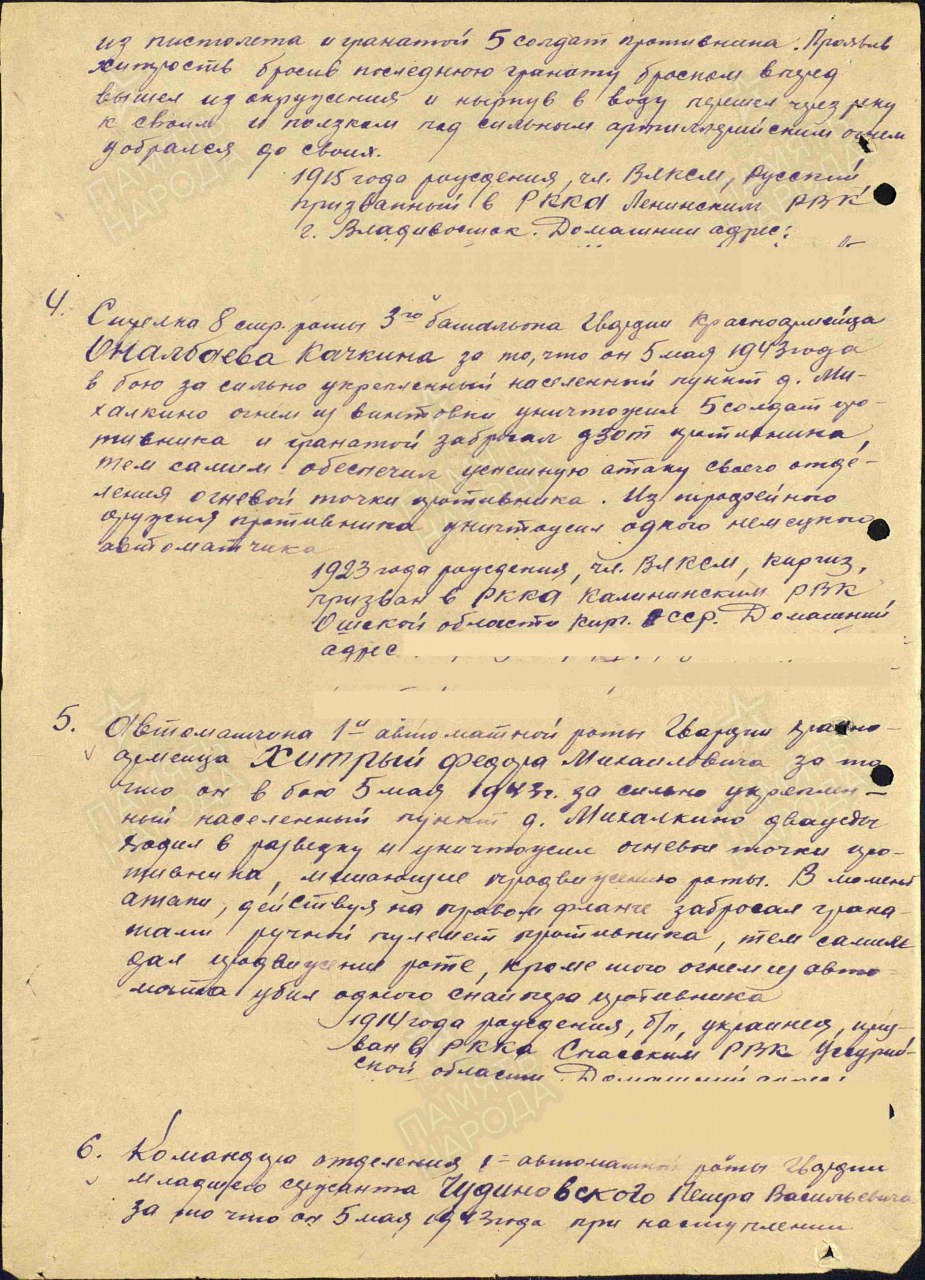 из пистолета и гранатой 5 солдат противника. Проявив
хитрость бросив последнюю гранату броском вперед
вышел из окружения и нырнув в воду перешел через реку
к своим и ползком под сильным артиллерийским огнем
добрался до своих.
1915 года рождения, чл. ВЛКСМ, русский
призванный в РККА Ленинским РВК
г. Владивосток. Домашний адрес:
4. Стрелка 8 стр. роты 3го батальона Гвардии Красноармейца
Оналбаева Качкина за то, что он 5 мая 1943 года
в бою за сильно укрепленный населенный пункт д. Ми-
халкино огнем из винтовки уничтожил 5 солдат про-
тивника и гранатой забросал дзот противника,
тем самым обеспечил успешную атаку своего отде-
ления огневой точки противника. Из трофейного
оружия противника уничтожил одного немецкого
автоматчика
1923 года рождения, чл. ВЛКСМ, киргиз,
призван в РККА Калининским РВК
Ошской области Кирг. ССР. Домашний
адрес
5. Автоматчика 1й автоматной роты Гвардии красно-
армейца Хитрый Федора Михайловича за то
что он в бою 5 мая 1943 г. за сильно укреплен-
ный населенный пункт д. Михалкино дважды
ходил в разведку и уничтожил огневые точки про-
тивника, мешающие продвижению роты. В момент
атаки, действуя на правом фланге забросал грана-
тами ручной пулемет противника, тем самым
дал продвижение роте, кроме того огнем из авто-
мата убил одного снайпера противника
1914 года рождения, б/п, украинец, приз-
ван в РККА Спасским РВК Уссурий-
ской области. Домашний адрес:
6. Командира отделения 1й автоматной роты Гвардии
младшего сержанта Чудиновского Петра Васильевича
за то что он 5 мая 1943 года при наступлении
ПАМЯТЬ НАРОДА